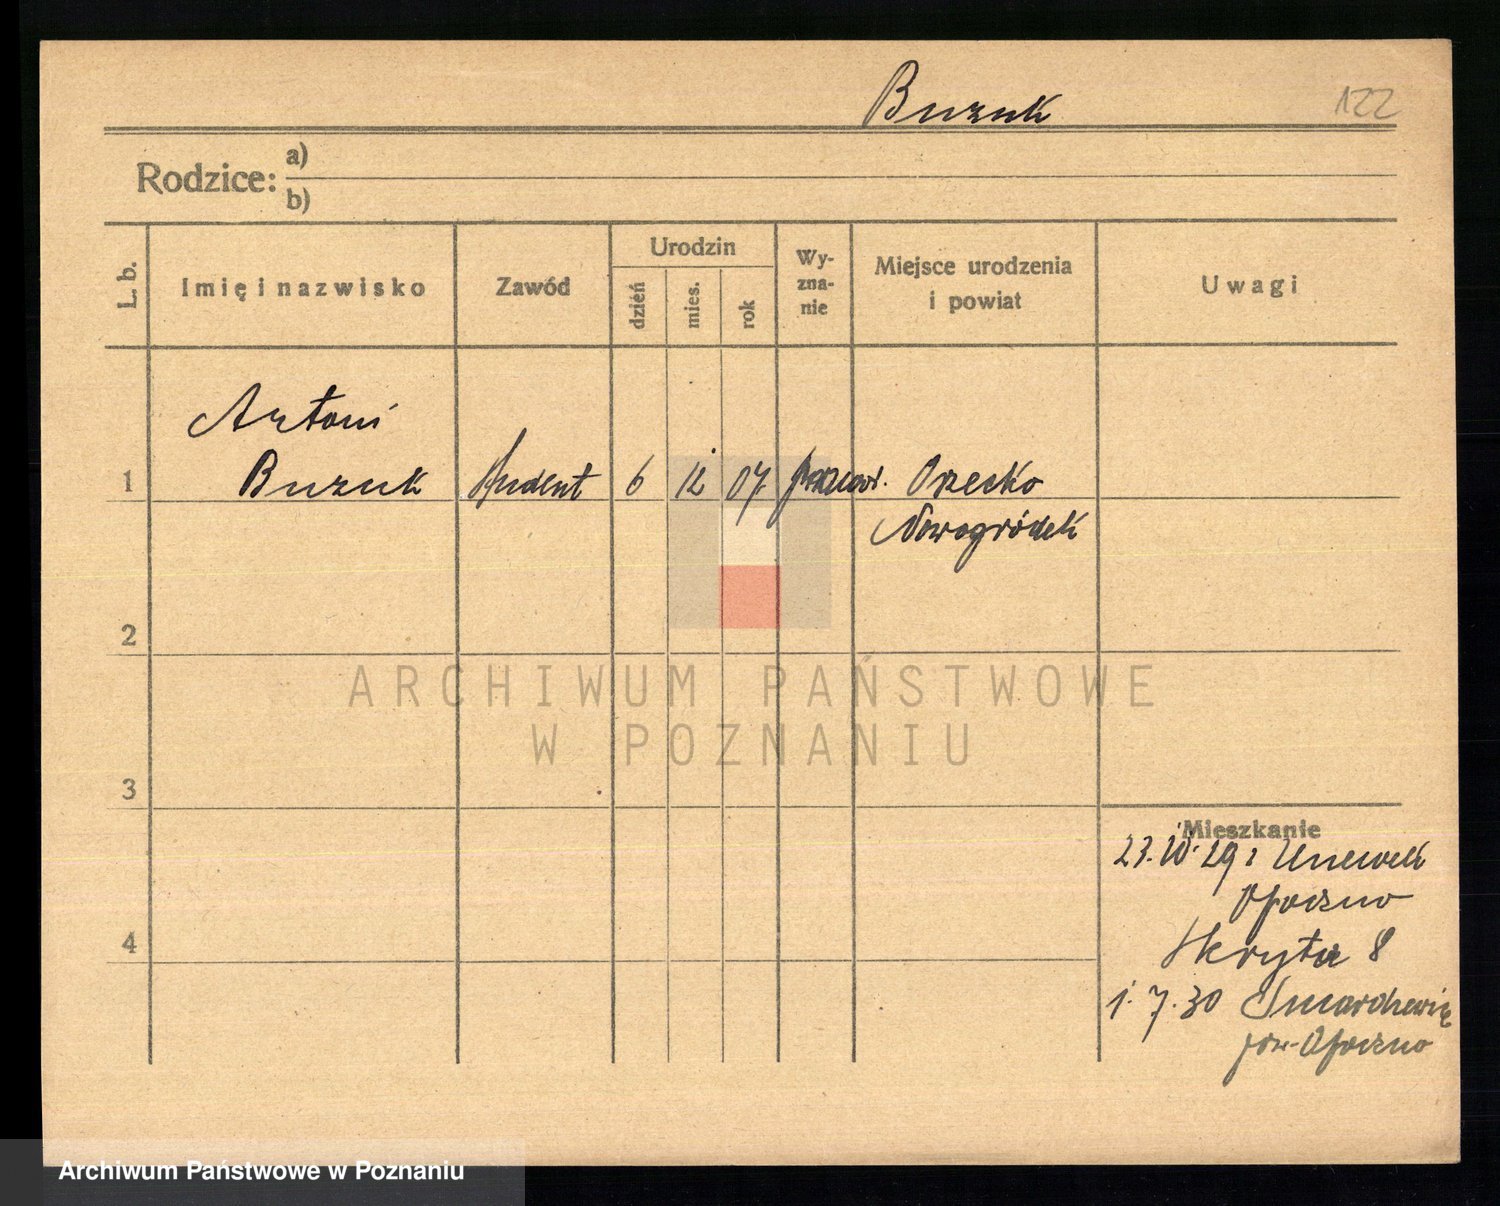 Buzuk 122
Rodzice: a)
b)
L. b.
Imię i nazwisko
Zawód
Urodzin
dzień
mies.
rok
Wy-
zna-
nie
Miejsce urodzenia
i powiat
Uwagi
Antoni
1 Buzuk Student 6 12 07 Orzecko
Nowogródek
2
ARCHIWUM PAŃSTWOWE
W POZNANIU
3
Mieszkanie
23. 29 z Unewel
Opoczno
4 Skryta 8
1.7.30 Smardzewice
pow. Opoczno
Archiwum Państwowe w Poznaniu